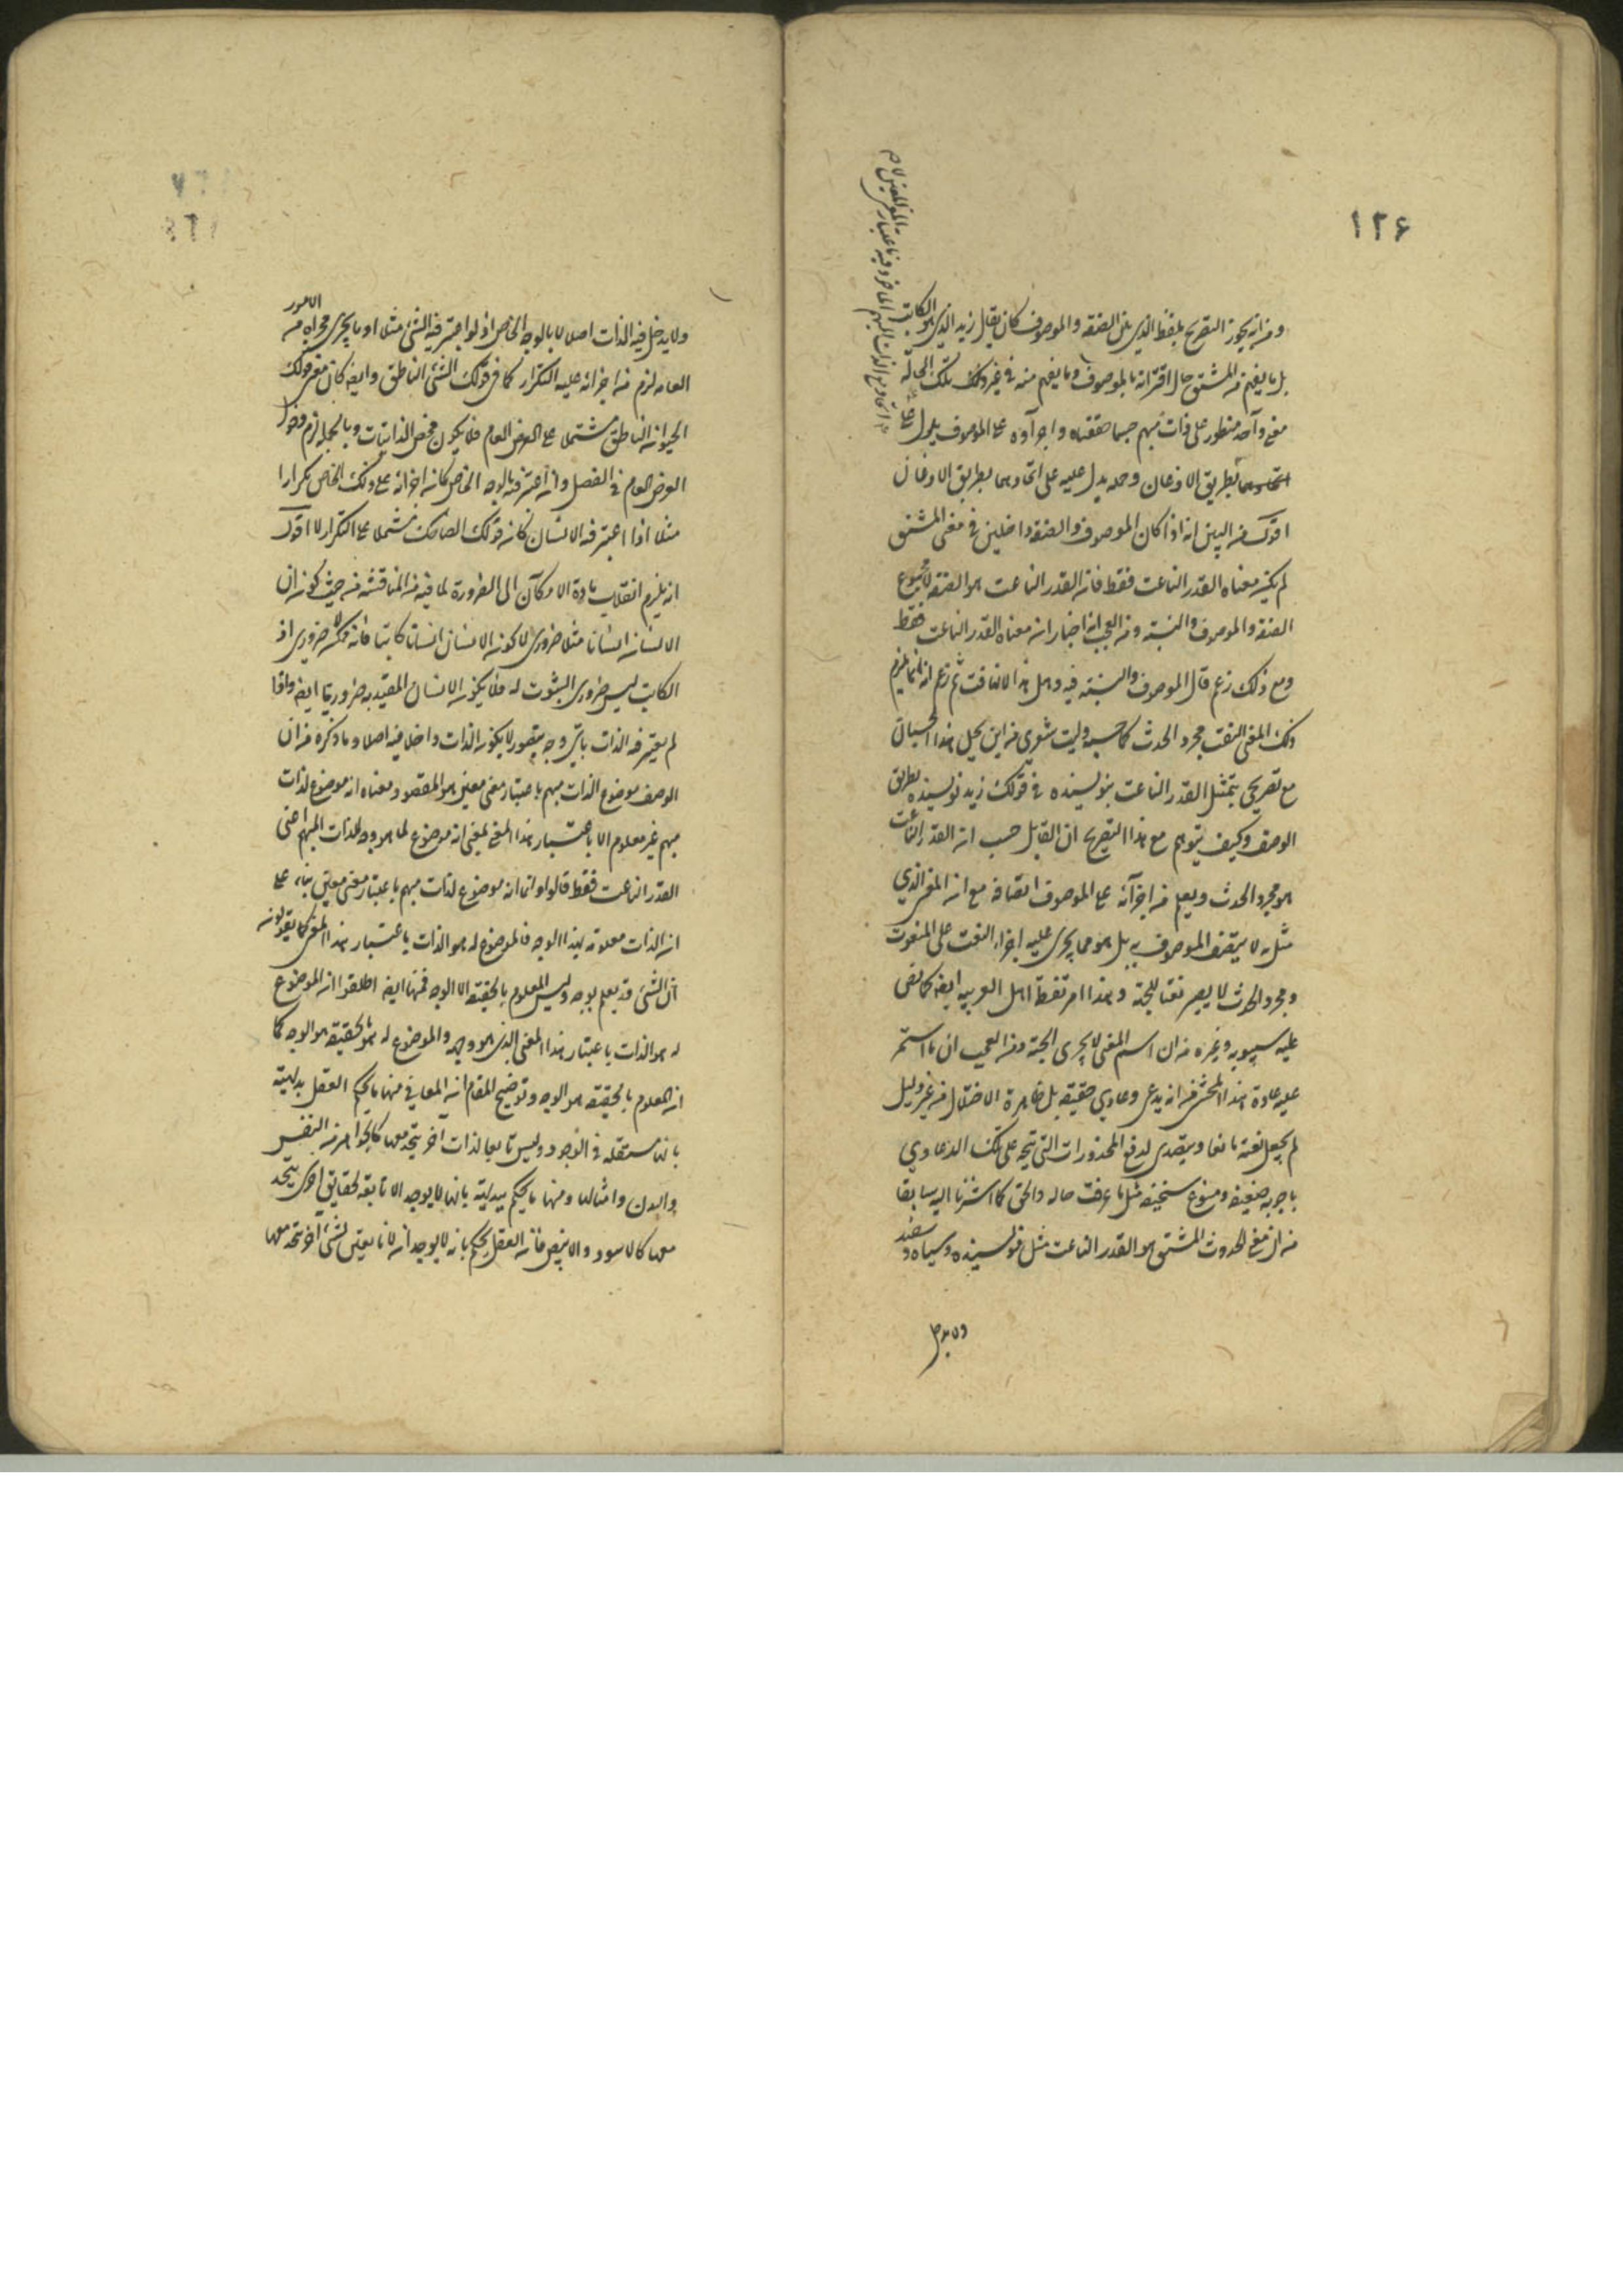 ١٢۶
ومن انه يجوز التصريح بلفظ الذي بين الصفة والموصوف كان يقال زيد الذي هو الكاتب
بل ما يفهم من المشتق حال اقترانه بالموصوف وما يفهم منه في غير ذلك تلك الحالة
معنى واحد منطوٍ على ذات مبهم حسبما حققناه واجراؤه على الموصوف يدل على
بطريق الاذعان وحمله يدل عليه على اتحادهما بطريق الاذعان
اقول من البين انه اذا كان الموصوف والصفة داخلين في معنى المشتق
لم يكن معناه القدر الناعت فقط فان القدر الناعت هو الصفة لا مجموع
الصفة والموصوف والنسبة ومن العجب انه اختار ان معناه القدر الناعت فقط
ومع ذلك زعم قال الموصوف والنسبة فيه وهل هذا الا تهافت ثم زعم انه انما يلزم
ذلك المعنى النعت مجرد الحدث كما حسبه وليت شعري من اين يحيل هذا الحسبان
مع تصريحي بتمثيل القدر الناعت بنويسنده في قولك زيد نويسنده بطريق
الوصف وكيف يتوهم مع هذا التصريح ان القايل حسب ان القدر الناعت
هو مجرد الحدث ويعلم من اجرائه على الموصوف اتصافه مع ان المعنى الذي
مثل به لا يتصف الموصوف به بل هو مما يجري عليه اجراء النعت على المنعوت
ومجرد الحدث لا يصير نعتا للجثة وهذا امر تفطن اهل العربيه ايضا كما نص
عليه سيبويه وغيره من ان اسم المعنى لا يجري الجثة ومن العجب ان ما استمر
عليه عادة هذا المحشي من انه يدعي دعاوي حقيقة بل ظاهرة الاختلال من غير دليل
لم يجعل نفسه مانعا ويتصدى لدفع المحذورات التي تتجه على تلك الدعاوي
باجوبه ضعيفه ومنوع سخيفه مثل ما عرفت حاله والحق كما اشرنا اليه سابقا
من ان معنى الحدوث المشتق هو القدر الناعت مثل نويسنده وسياه وسفيد
ولا يدخل
ولا يدخل فيه الذات اصلا لا بالوجه الخاص اذ لو اعتبر فيه الشئ مثلا او ما يجري مجراه من الامور
العامه لزم من اجرائه عليه التكرار كما في قولك الشئ الناطق وايضا كان معنى قولك
الحيوان الناطق مشتملا على العرض العام فلا يكون محض الذاتيات وبالجمله لزم دخول
العرض العام في الفصل وان اعتبر فيه بالوجه الخاص كان اجرائه على ذلك الخاص تكرارا
مثلا اذا اعتبر فيه الانسان كان قولك الضاحك مشتملا على التكرار لا اقول
انه يلزم انقلاب مادة الامكان الى الضرورة لما فيه من المناقشة من حيث كون ان
الانسان انسانا مثلا ضروري لا كون الانسان انسانا كاتبا فانه ممكن لا ضروري اذ
الكاتب ليس ضروري الثبوت له فلا يكون الانسان المقيد به ضروريا ايضا واذا
لم يعتبر فيه الذات باي وجه يتصور لا يكون الذات داخلا فيه اصلا وما ذكره من ان
الوصف موضوع لذات مبهم باعتبار معنى معين هو المقصود ومعناه انه موضوع لذات
مبهم غير معلوم الا باعتبار هذا المعنى بمعنى انه موضوع لما هو وجه لذات المبهم اعني
القدر الناعت فقط قالوا وانما انه موضوع لذات مبهم باعتبار معنى معين بناء على
ان الذات معلومة بهذا الوجه فالموضوع له هو الذات باعتبار هذا المعنى كما يقولونه
ان الشئ قد يعلم بوجه وليس المعلوم بالحقيقة الا الوجه فههنا ايضا اطلقوا ان الموضوع
له هو الذات باعتبار هذا المعنى الذي هو وجهه والموضوع له بالحقيقة هو الوجه كما
ان المعلوم بالحقيقة هو الوجه وتوضيح المقام ان المعاني منها ما يحكم العقل بديهية
بانها مستقله في الوجود وليس تابعا لذات آخر يتحد معها كالجواهر من النفس
والبدن وامثالها ومنها ما يحكم بديهية بانها لا يوجد الا تابعة لحقايق اخرى يتحد
معها كالاسود والابيض فانه العقل يحكم بانه لا يوجد ان الا تابعين لشئ آخر يتحد معها